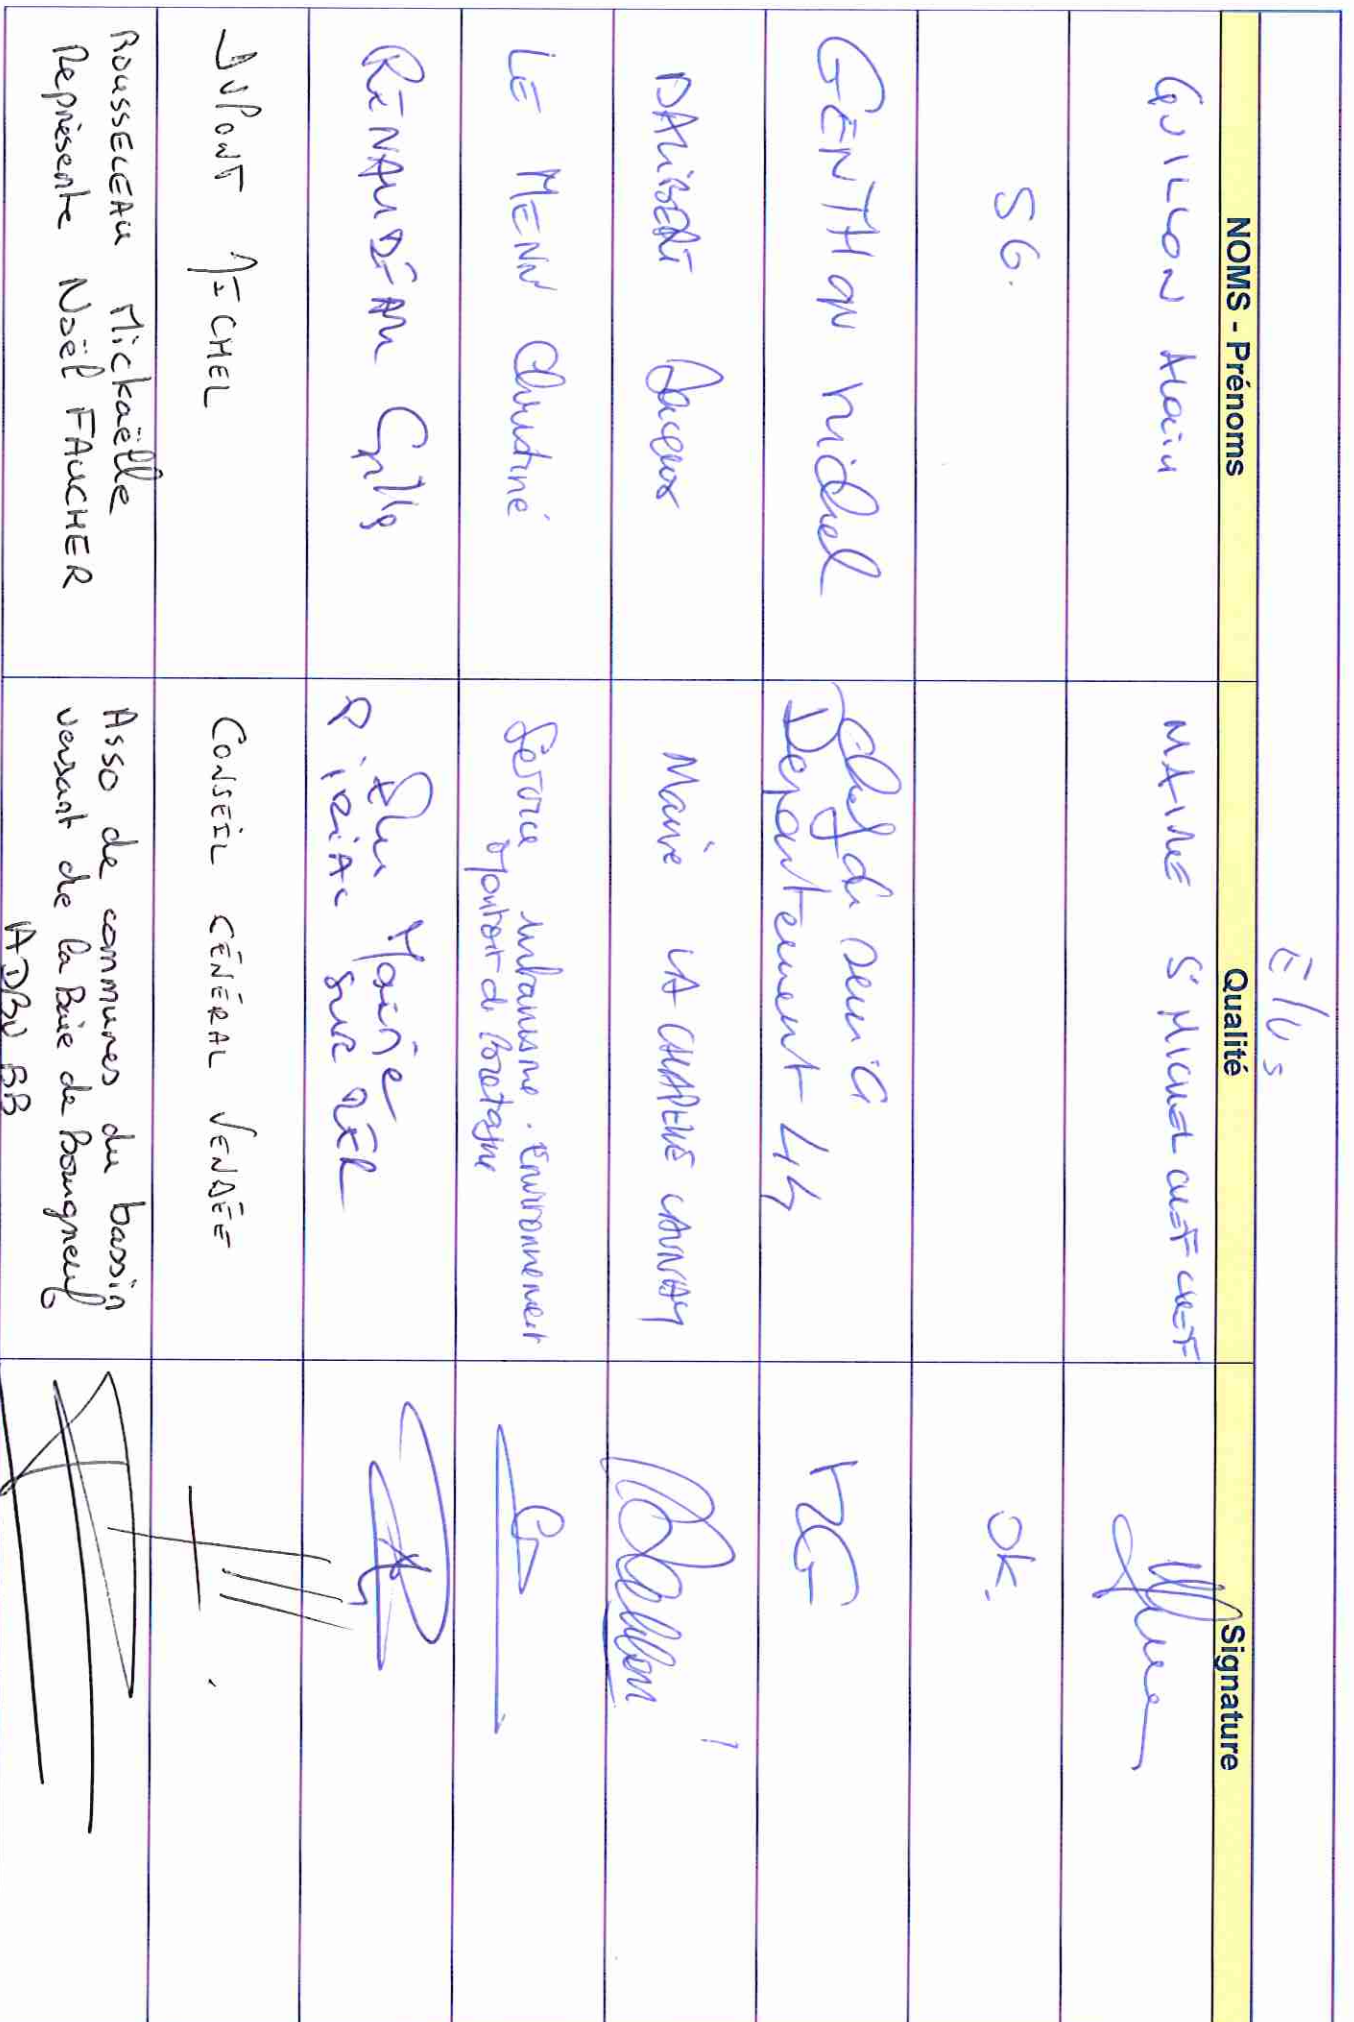 Élus
NOMS - Prénoms
Qualité
Signature
GUILLON Alain
MAIRIE St MICHEL CHEF CHEF
SG.
OK.
GENTHON Michel
Chef de service
Département 44
MG
DALIBERT Jacques
Mairie LA CHAPELLE LAUNAY
LE MENN Christine
Service urbanisme. Environnement
Montoir de Bretagne
RENAUDEAU Gilles
Elu Mairie
PIRIAC SUR MER
DUPONT MICHEL
CONSEIL GÉNÉRAL VENDÉE
ROUSSELEAU Mickaëlle
Représente Noël FAUCHER
Asso de communes du bassin
versant de la Baie de Bourgneuf
ADBVBB